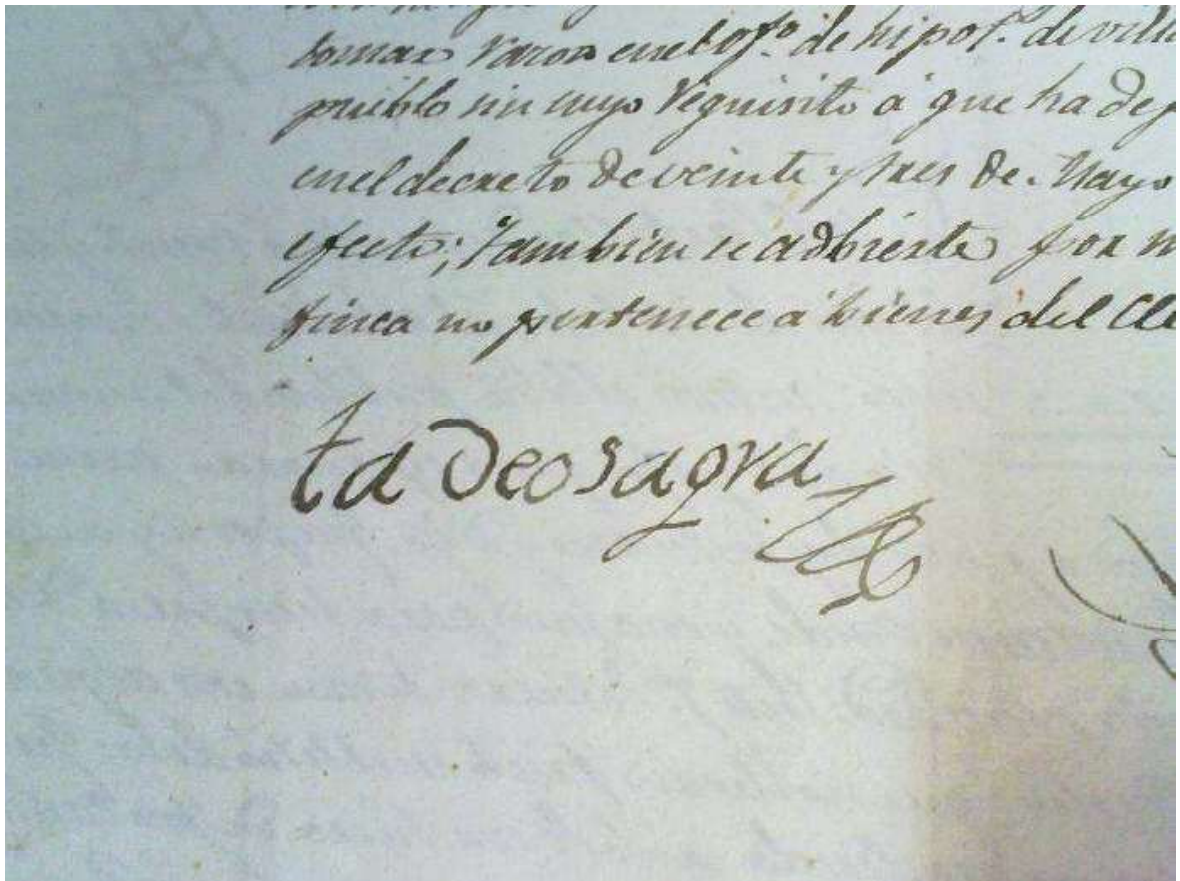 tomar razon en el ofº de hipot.s de
pueblo sin cuyo requisito á que ha de
en el decreto de veinte y tres de Mayo
efecto; Tambien se adbierte por
finca no pertenece a bienes del
ta Deo sagra